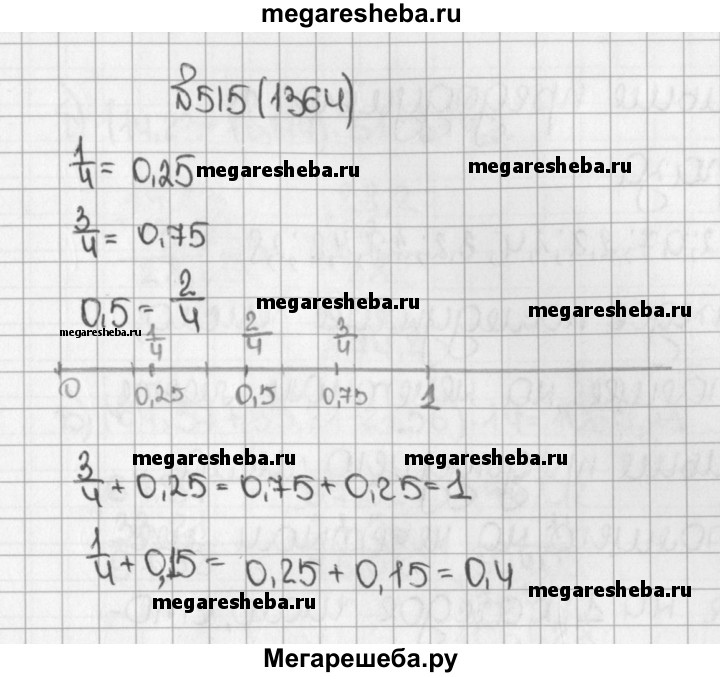 megaresheba.ru
№515(1364)
1/4 = 0,25 megaresheba.ru megaresheba.ru
3/4 = 0,75
0,5 = 2/4 megaresheba.ru megaresheba.ru
megaresheba.ru
1/4 2/4 3/4
0 0,25 0,5 0,75 1
megaresheba.ru megaresheba.ru
3/4 + 0,25 = 0,75 + 0,25 = 1
1/4 + 0,15 = 0,25 + 0,15 = 0,4
megaresheba.ru megaresheba.ru
Мегарешеба.ру